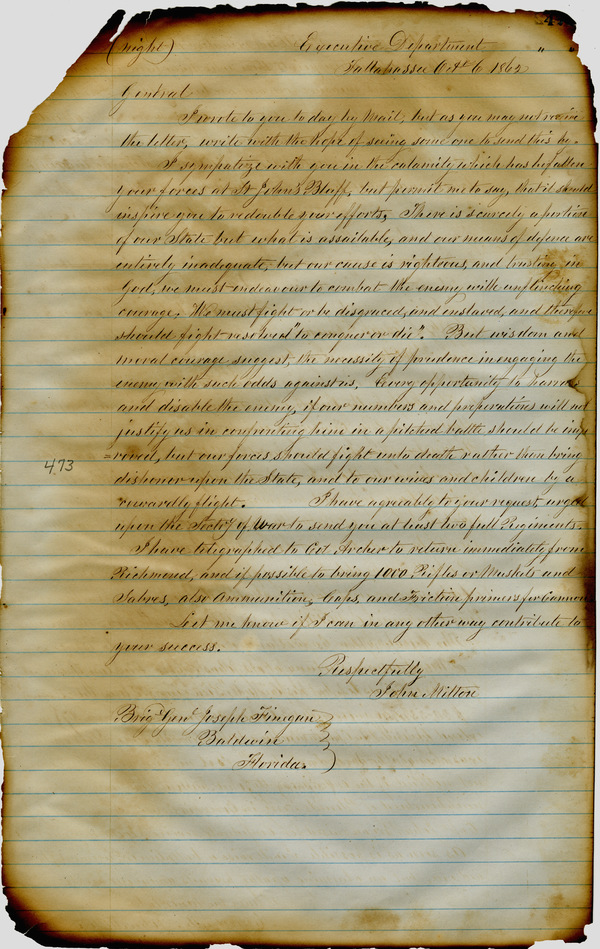 4
(night) Executive Department " "
Tallahassee Oct 6 1862
General
I wrote to you to day by Mail, but as you may not receive
the letter, write with the hope of seeing some one to send this by.
I sympatize with you in the calamity which has befallen
your forces at St Johns Bluff, but permit me to say, that it should
inspire you to redouble your efforts. There is scarcely a portion
of our State but what is assailable, and our means of defence are
entirely inadequate, but our cause is rightious, and trusting in
God, we must endeavour to combat the enemy with unflinching
courage. We must fight or be disgraced, and enslaved, and therefore
should fight resolved "to conquer or die". But wisdom and
moral courage suggest, the necessity of prudence in engaging the
enemy with such odds against us. Every opportunity to harrass
and disable the enemy, if our numbers and preparations will not
justify us in confronting him in a pitched battle should be impr
=roved, but our forces should fight unto death rather than bring
473
dishonor upon the State, and to our wives and children by a
cowardly flight. I have agreeable to your request, urged
upon the Secty of War to send you at least two full Regiments.
I have telegraphed to Col Archer to return immediately from
Richmond, and if possible to bring 1000 Rifles or Muskets and
Sabres, also Ammunition, Caps, and Friction primers for Cannon
Let me know if I can in any other way contribute to
your success.
Respectfully
John Milton
Brig Genl Joseph Finegan
Baldwin
Florida.